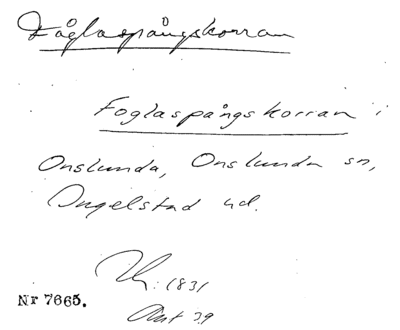 Fåglaspångskorran
Foglaspångskorran i
Onslunda, Onslunda sn,
Ingelstad hd.
1831
Nr 7665.